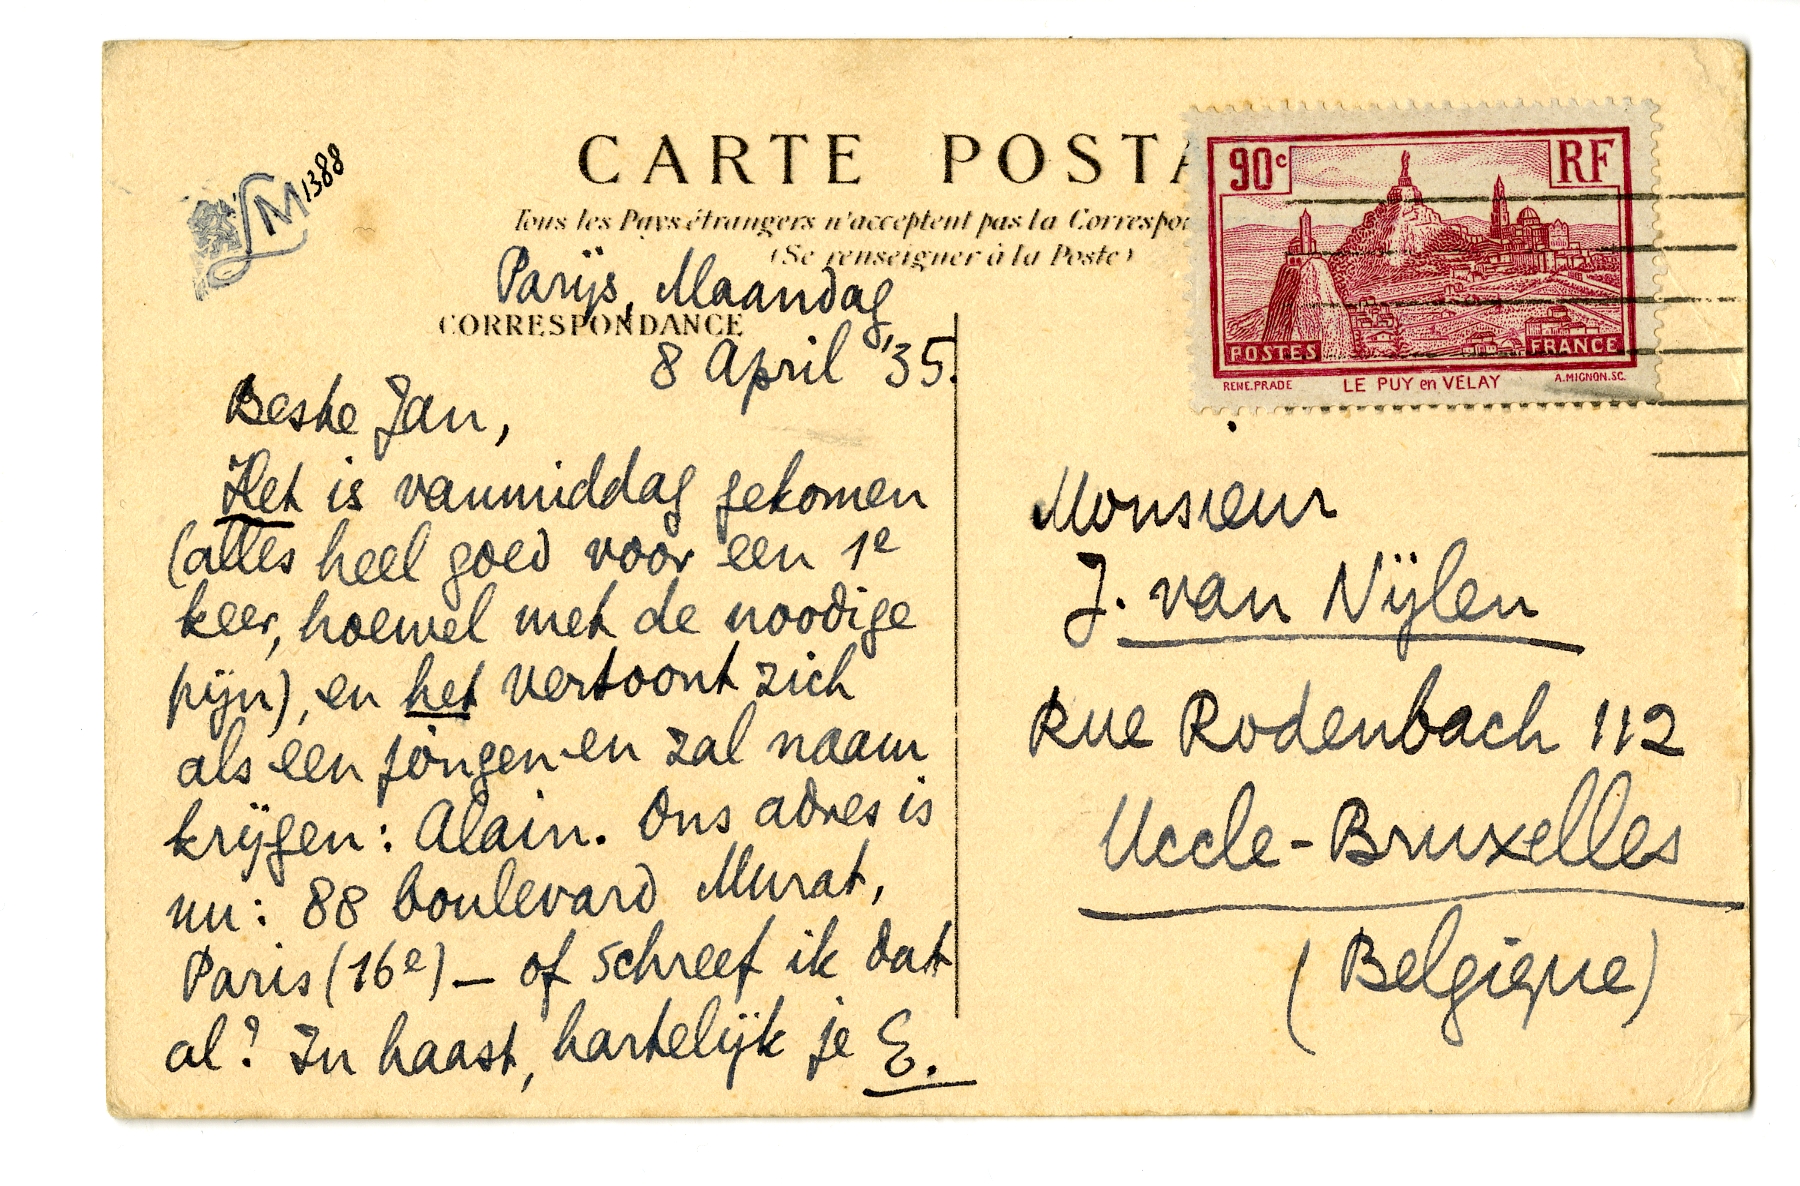 LM 1388
CARTE POSTA
Tous les Pays étrangers n'acceptent pas la Correspo
(Se renseigner à la Poste)
Parijs, Maandag,
CORRESPONDANCE
8 April '35.
Beste Jan,
Het is vanmiddag gekomen
(alles heel goed voor een 1e
keer, hoewel met de noodige
pijn), en het vertoont zich
als een jongen en zal naam
krijgen: Alain. Ons adres is
nu: 88 boulevard Murat,
Paris (16e) — of schreef ik dat
al? In haast, hartelijk je E.
90c RF
POSTES FRANCE
RENE.PRADE LE PUY en VELAY A.MIGNON.SC.
Monsieur
J. van Nijlen
Rue Rodenbach 112
Uccle-Bruxelles
(Belgique)